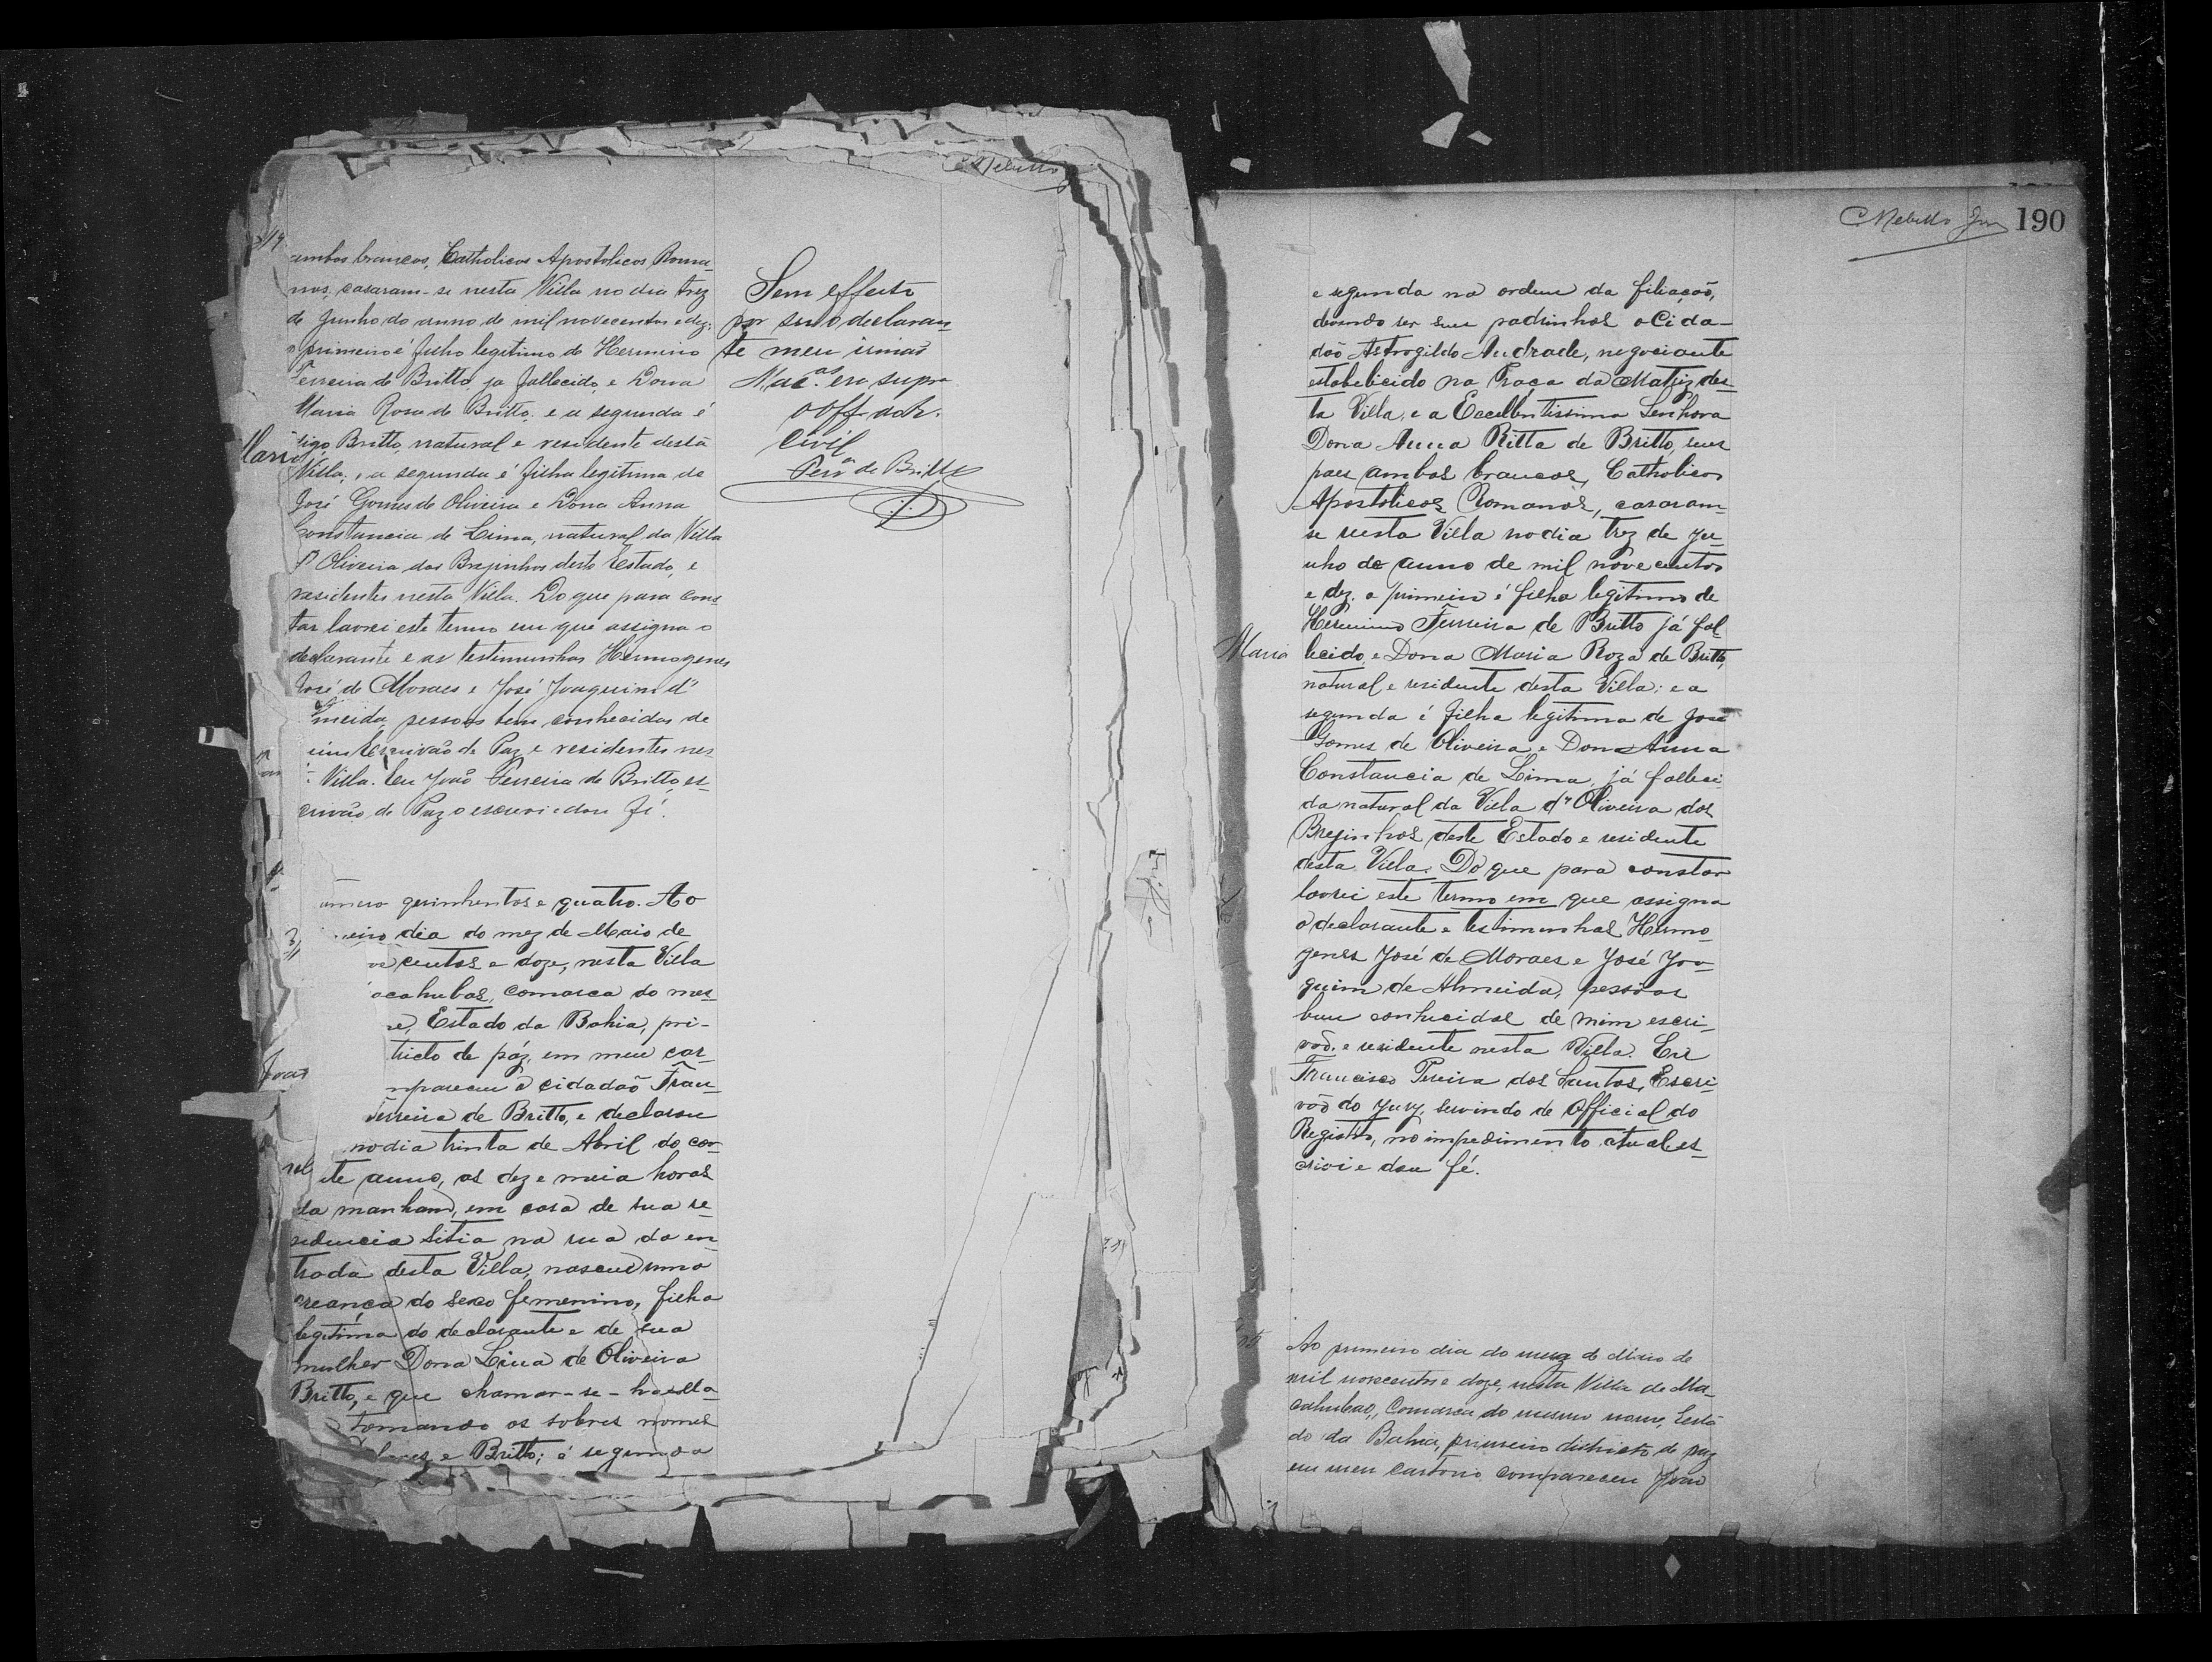 ambos brancos, Catholicos Apostolicos Roma-
nos, casaram-se nesta Villa no dia trez
de Junho do anno de mil novecentos e dez:
o primeiro é filho legitimo de Hermino
Ferreira de Britto, ja fallecido, e Dona
Maria Rosa de Britto, e a segunda é
Britto, natural e residente desta
Villa; e a segunda é filha legitima de
José Gomes de Oliveira e Dona Anna
Constancia de Lima, natural da Villa
d'Oliveira dos Brejinhos deste Estado, e
residentes nesta Villa. Do que para cons
tar lavrei este termo em que assigna o
declarante e as testimunhas Hermogenes
José de Moraes e José Joaquim d'
lmeida, pessoas bem conhecidas de
mim Escrivão de Paz e residentes nes
Villa. Eu João Ferreira de Britto, es-
crivão de Paz o escrevi e dou fé.
Sem effeito
por ser o declaran-
te meu irmão
Mac.as era supra
o off. do r.
Civil
Ferra de Britto
umero quinhentos e quatro. Ao
meiro dia do mez de Maio de
centos e doze, nesta Villa
acahubas, comarca do mes-
Estado da Bahia, pri-
tricto de páz, em meu car-
mpareceu o cidadaõ Fran-
Ferreira de Britto, e declarou
no dia trinta de Abril do cor-
te anno, as dez e meia horas
da manham, em casa de sua re-
sidencia sitia na rua da en-
trada desta Villa, nasceu uma
creança do sexo femenino, filha
legitima do declarante e de sua
mulher Dona Lina de Oliveira
Britto, e que chamar-se-ha Ma-
tomando os sobres nomes
e Britto; é segunda
190
e segunda na ordem da filiaçaõ,
devendo ser seus padrinhos o Cida-
daõ Astrogildo Andrade, negociante
estabelicido na Praça da Matriz des-
ta Villa, e a Excellentissima Senhora
Dona Anna Ritta de Britto, seus
paes ambos brancos, Catholicos
Apostolicos Romanos, casaram-
se nesta Villa no dia trez de Ju-
nho do anno de mil novecentos
e dez. o primeiro é filho legitimo de
Hermino Ferreira de Britto já fal-
Maria lecido, e Dona Maria Roza de Britto,
natural e residente desta Villa; e a
segunda é filha legitima de José
Gomes de Oliveira e Dona Anna
Constancia de Lima, já falleci-
da natural da Villa d'Oliveira dos
Brejinhos deste Estado e residente
desta Villa. Do que para constar
lavrei este termo em que assigna
o declarante e testimunhas Hermo-
genes José de Moraes e José Joa-
quim de Almeida, pessoas
bem conhecidas de mim escri-
vaõ, e residente nesta Villa. Eu
Francisco Pereira dos Santos, Escri-
vaõ do Jury, servindo de Official do
Registro, no impedimento atual es-
crivi e dou fé.
Ao primeiro dia do mez de Maio de
mil novecentos e doze, nesta Villa de Ma-
cahubas, Comarca do mesmo nome, Esta
do da Bahia, primeiro districto de paz
em meu cartorio compareceu João